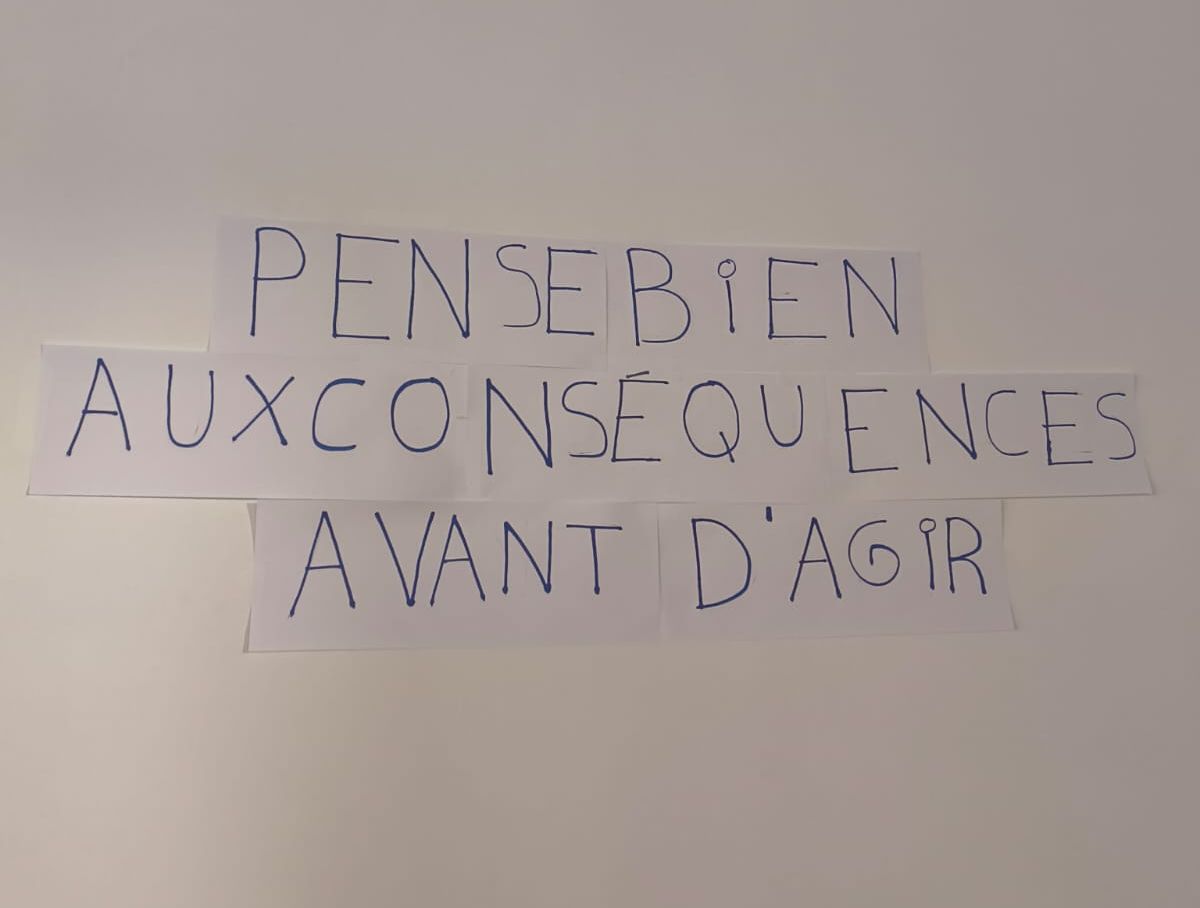 PENSE BiEN
AUX CONSÉQUENCES
AVANT D'AGiR